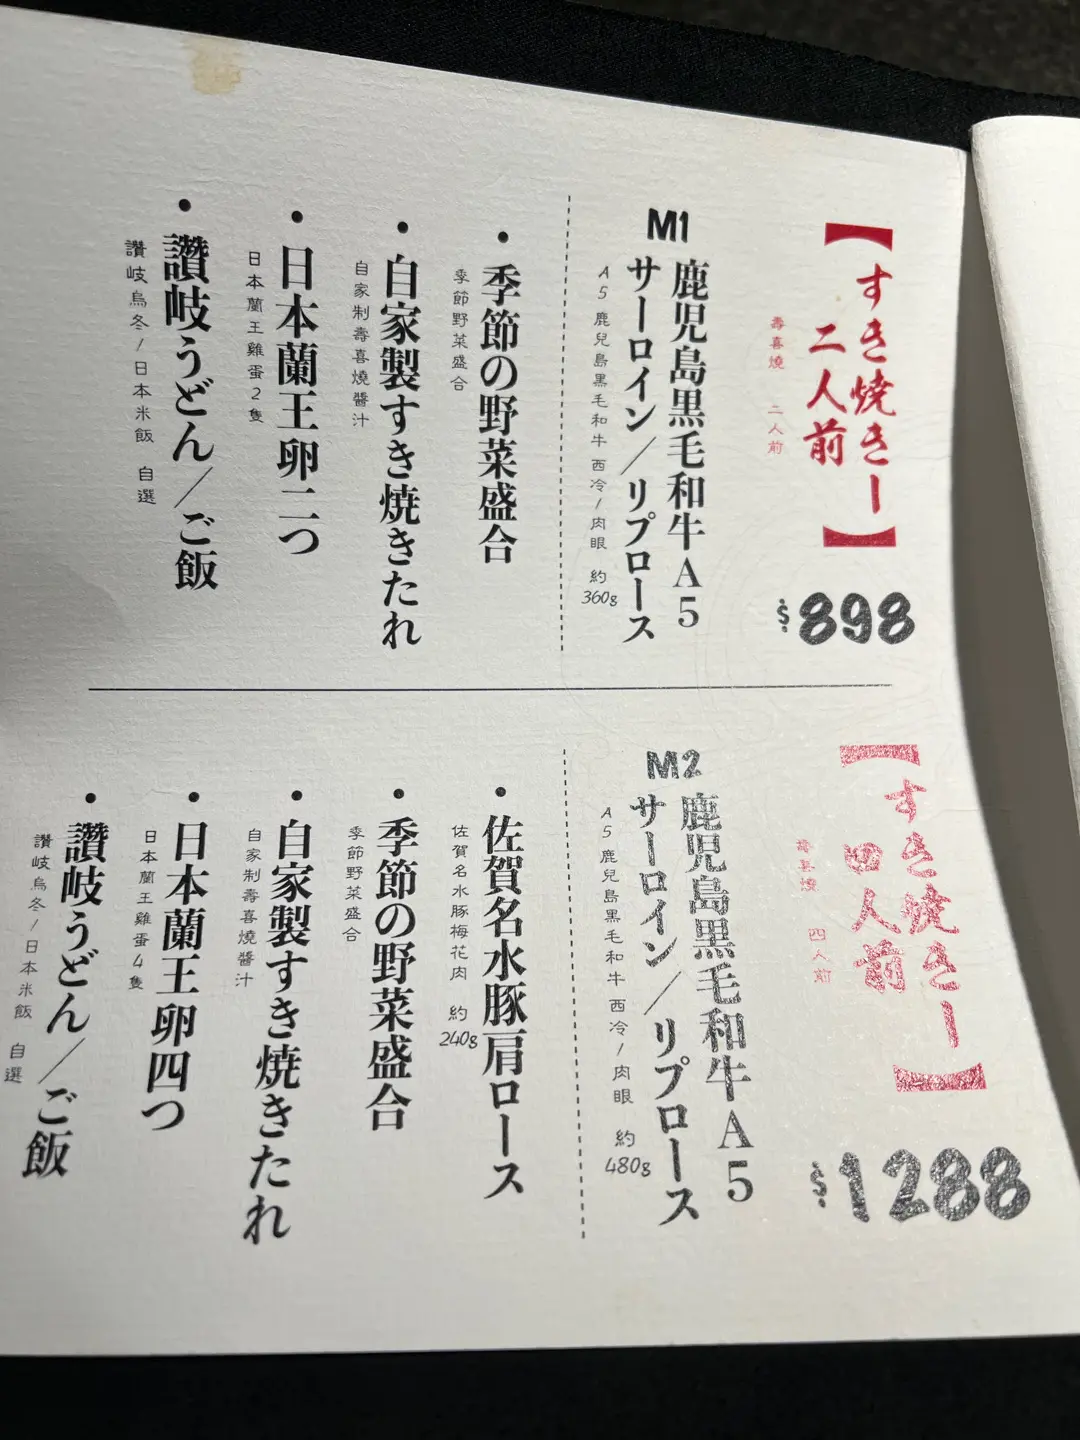 【すき焼きー
二人前】
壽喜燒 二人前
$898
M1
鹿児島黒毛和牛A5
サーロイン/リブロース
A5鹿兒島黒毛和牛 西冷/肉眼 約360g
・季節の野菜盛合
季節野菜盛合
・自家製すき焼きたれ
自家制壽喜燒醬汁
・日本蘭王卵二つ
日本蘭王雞蛋2隻
・讃岐うどん/ご飯
讚岐烏冬/日本米飯 自選
【すき焼きー
四人前】
壽喜燒 四人前
$1288
M2
鹿児島黒毛和牛A5
サーロイン/リブロース
A5鹿兒島黒毛和牛 西冷/肉眼 約480g
・佐賀名水豚肩ロース
佐賀名水豚梅花肉 約240g
・季節の野菜盛合
季節野菜盛合
・自家製すき焼きたれ
自家制壽喜燒醬汁
・日本蘭王卵四つ
日本蘭王雞蛋4隻
・讃岐うどん/ご飯
讚岐烏冬/日本米飯 自選